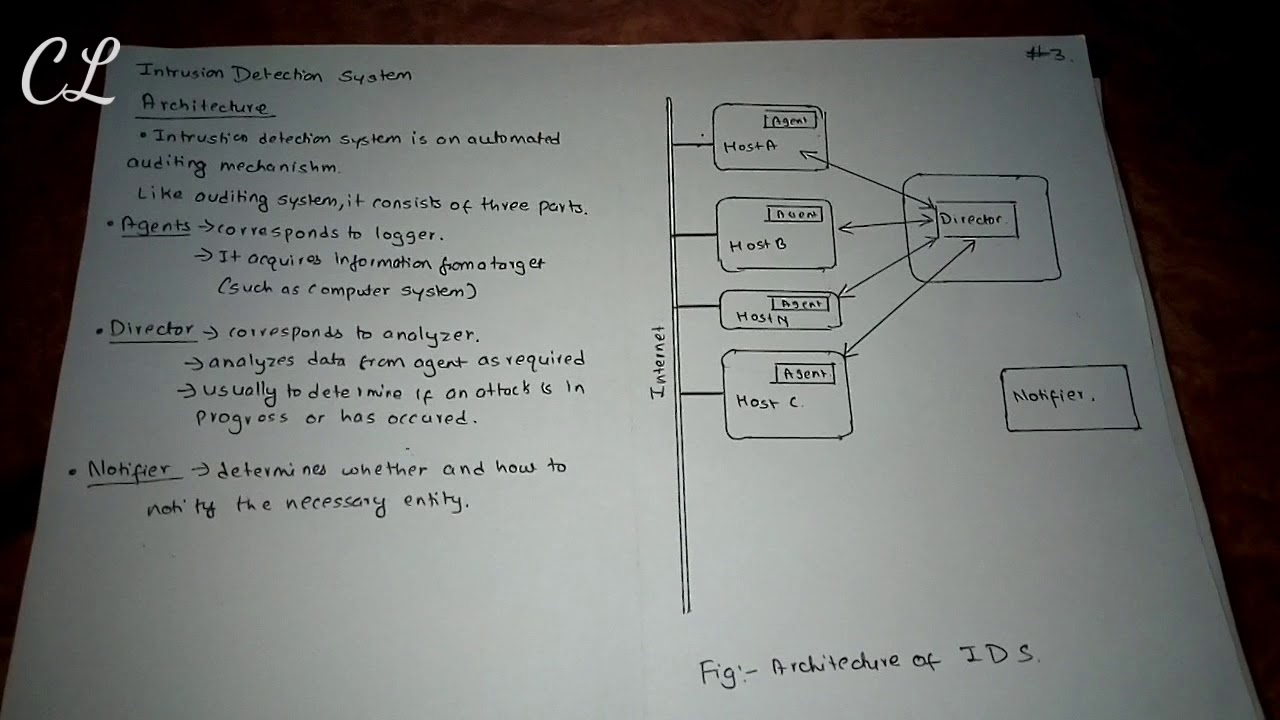 CL
#3.
Intrusion Detection System
Architecture
• Intrustion detection system is an automated
auditing mechanishm.
Like auditing system, it consists of three parts.
• Agents → corresponds to logger.
→ It acquires information from a target
(such as computer system)
• Director → corresponds to analyzer.
→ analyzes data from agent as required
→ usually to determine if an attack is in
progress or has occured.
• Notifier → determines whether and how to
notify the necessary entity.
Internet
Agent
Host A
Agent
Host B
Agent
Host N
Agent
Host C.
Director.
Notifier.
Fig:- Architecture of IDS.